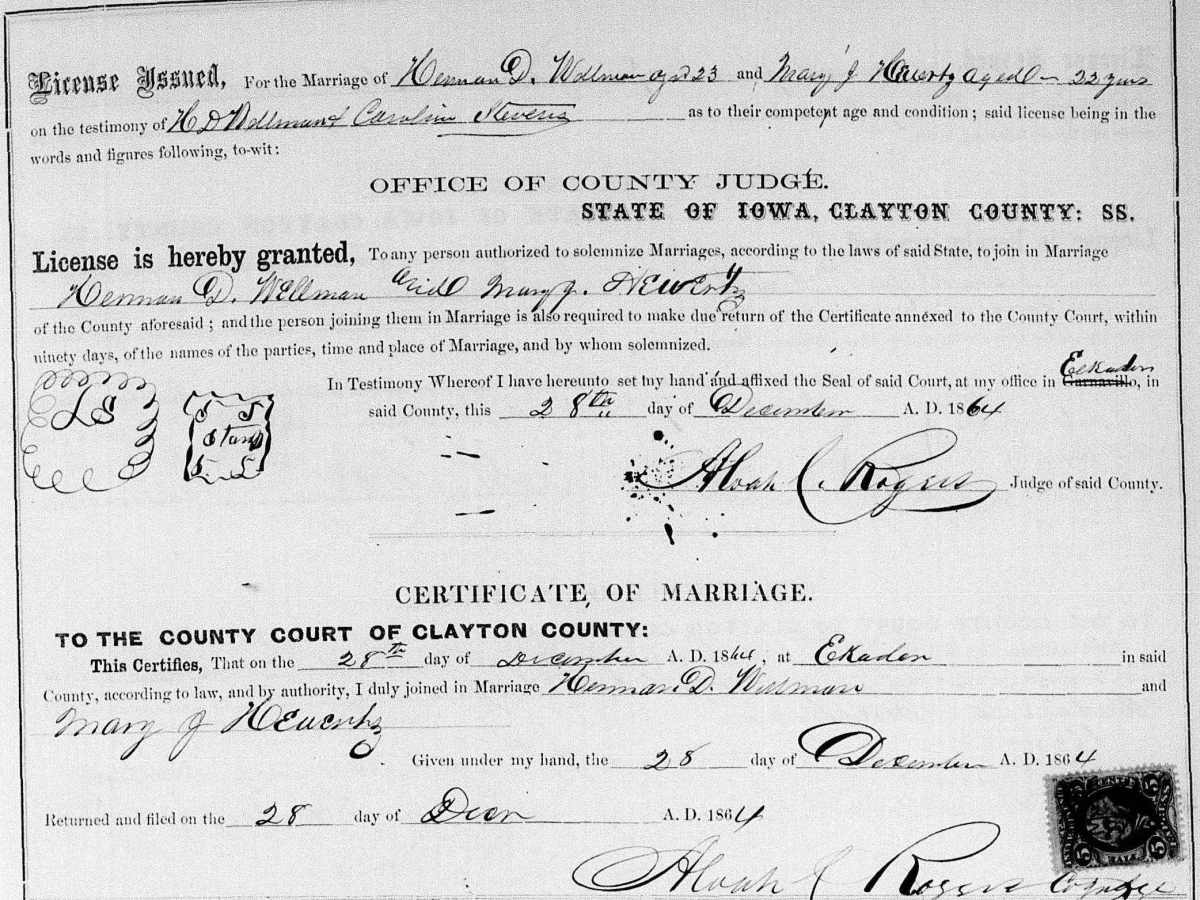 License Issued, For the Marriage of Herman D. Wellman agd 23 and Mary J Hewertz aged — 22 years
on the testimony of H D Wellman & Caroline Stevens as to their competent age and condition; said license being in the
words and figures following, to-wit:
OFFICE OF COUNTY JUDGE.
STATE OF IOWA, CLAYTON COUNTY: SS.
License is hereby granted, To any person authorized to solemnize Marriages, according to the laws of said State, to join in Marriage
Herman D. Wellman and Mary J. Hewertz
of the County aforesaid; and the person joining them in Marriage is also required to make due return of the Certificate annexed to the County Court, within
ninety days, of the names of the parties, time and place of Marriage, and by whom solemnized.
Elkader
In Testimony Whereof I have hereunto set my hand and affixed the Seal of said Court, at my office in Garnavillo, in
said County, this 28th day of December A. D. 1864
LS
Stamp
Rogers Judge of said County.
CERTIFICATE OF MARRIAGE.
TO THE COUNTY COURT OF CLAYTON COUNTY:
This Certifies, That on the 28th day of December A. D. 1864, at Elkader in said
County, according to law, and by authority, I duly joined in Marriage Herman D. Wellman and
Mary J Hewertz
Given under my hand, the 28 day of December A. D. 1864
Returned and filed on the 28 day of Decr A. D. 1864
Rogers Co Judge
5 CENTS 5
5 FIVE 5